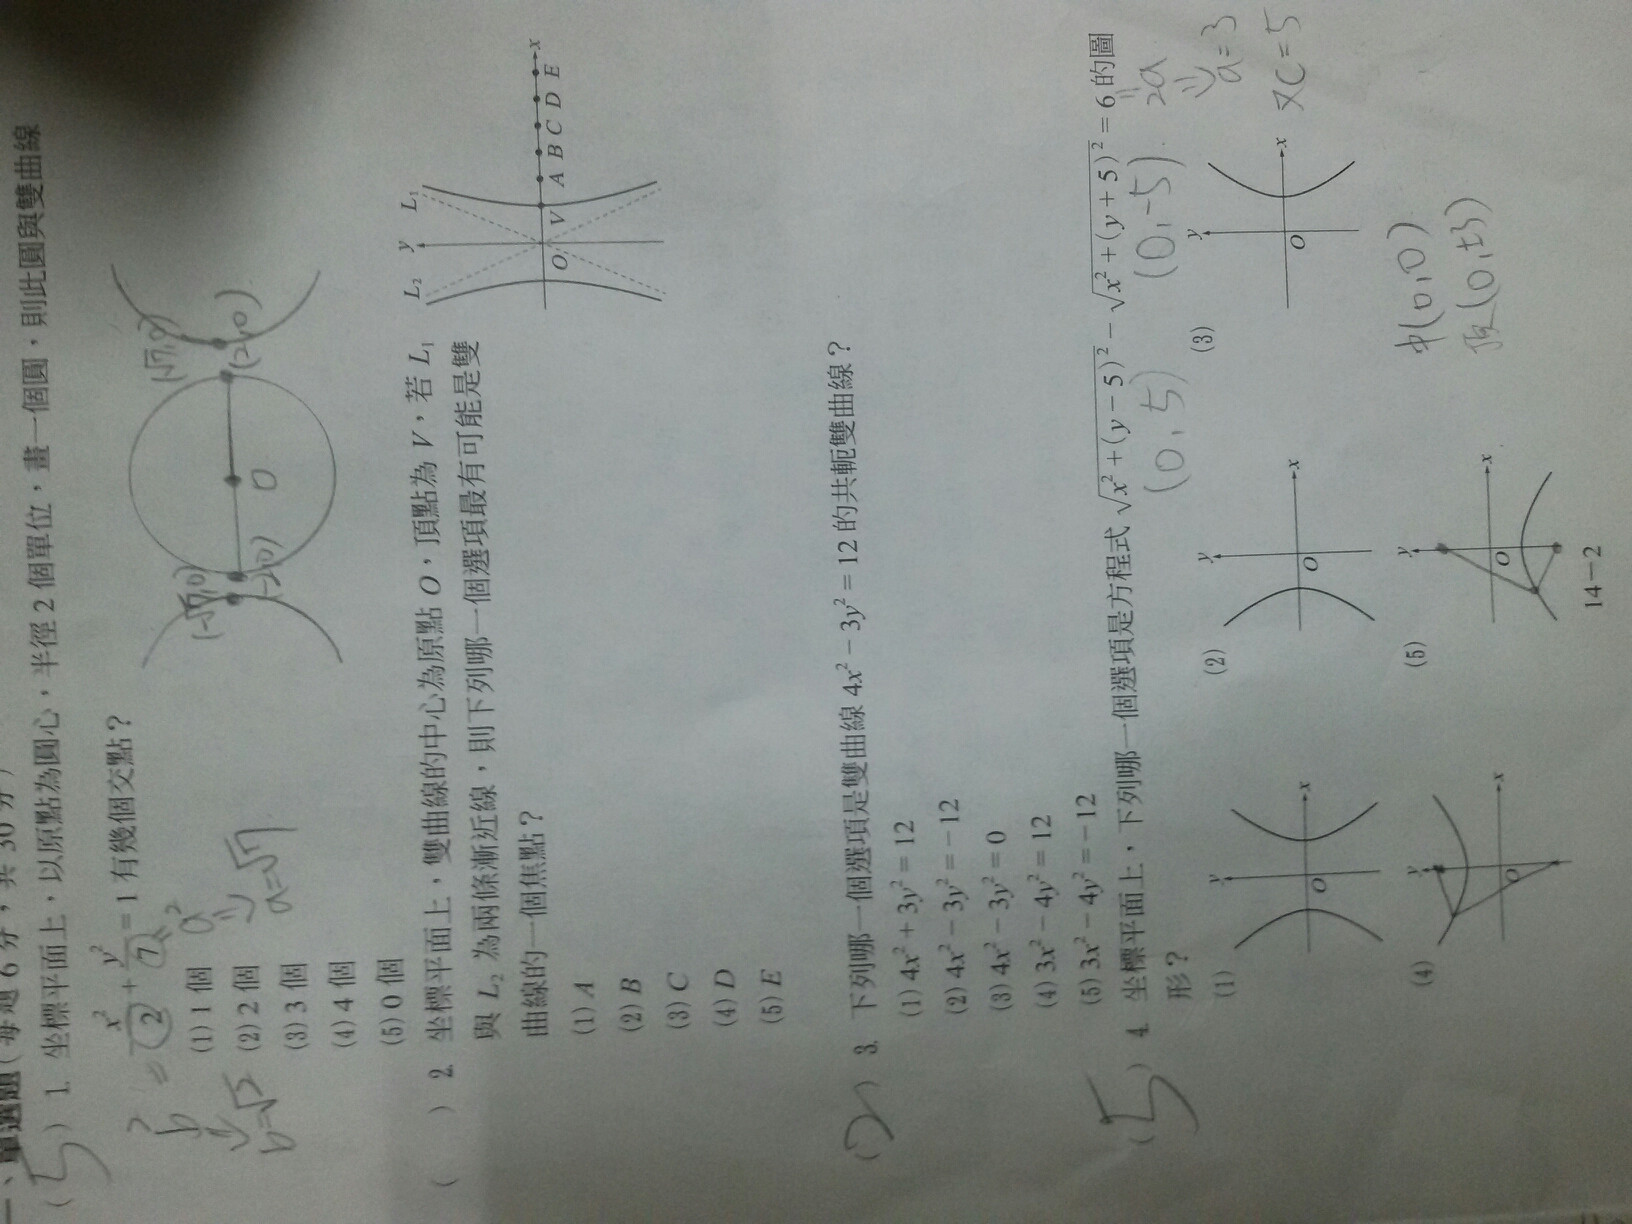 一、單選題(每題 6 分,共 30 分)
(5) 1. 坐標平面上,以原點為圓心,半徑 2 個單位,畫一個圓,則此圓與雙曲線
x²/2 + y²/7 = 1 有幾個交點?
b² = a²
b=√2 a=√7
(-√7,0) (-2,0) O (2,0) (√7,0)
(1) 1 個
(2) 2 個
(3) 3 個
(4) 4 個
(5) 0 個
( ) 2. 坐標平面上,雙曲線的中心為原點 O,頂點為 V,若 L₁
與 L₂ 為兩條漸近線,則下列哪一個選項最有可能是雙
曲線的一個焦點?
L₂ y L₁
O V A B C D E x
(1) A
(2) B
(3) C
(4) D
(5) E
(2) 3. 下列哪一個選項是雙曲線 4x² − 3y² = 12 的共軛雙曲線?
(1) 4x² + 3y² = 12
(2) 4x² − 3y² = −12
(3) 4x² − 3y² = 0
(4) 3x² − 4y² = 12
(5) 3x² − 4y² = −12
(5) 4. 坐標平面上,下列哪一個選項是方程式 √x² + (y − 5)² − √x² + (y + 5)² = 6 的圖
形?
(0,5) (0,-5) 2a
a=3
又C=5
(1) y O x
(2) y O x
(3) y O x
(4) y O x
(5) y O x
中(0,0)
頂(0,±3)
14−2